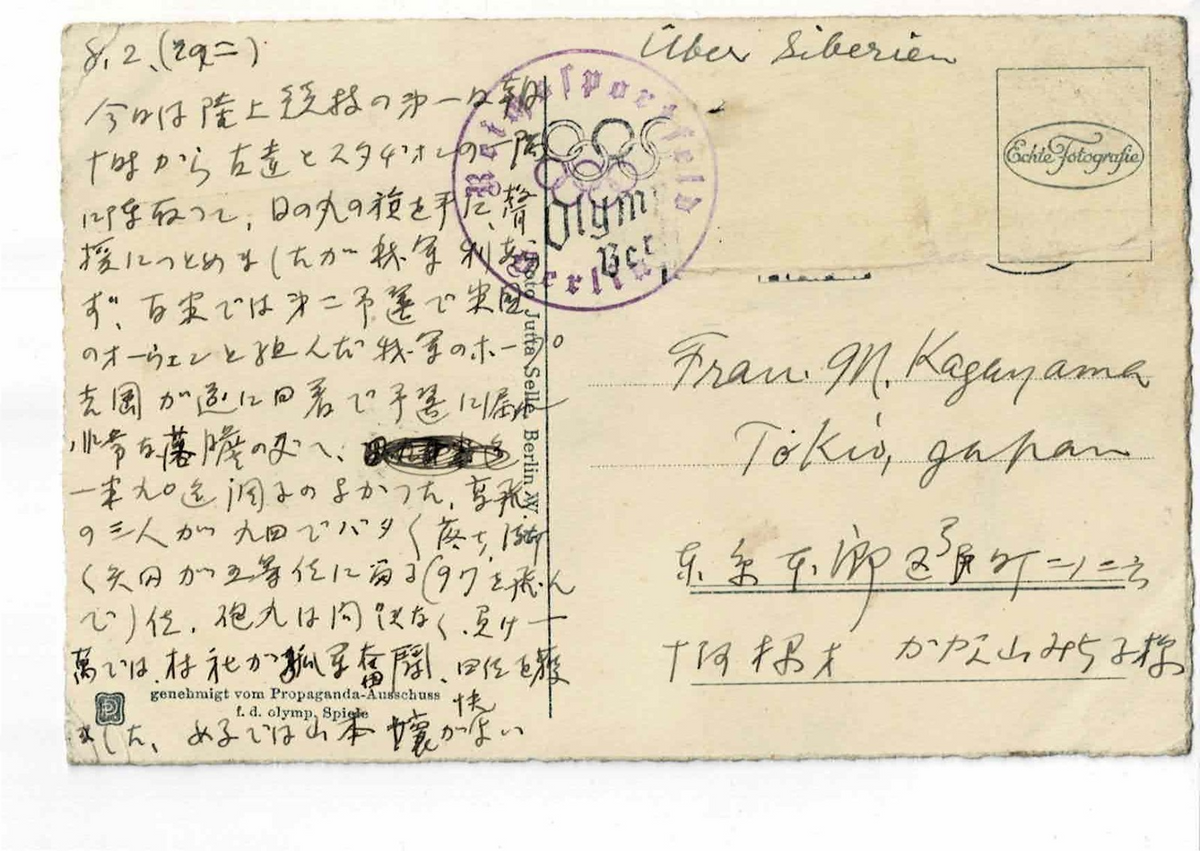 8.2、(その二)
今日は陸上競技の第一日 朝
十時から 友達とスタヂオンの一隅
に陣取つて、日の丸の旗を手に、聲
援につとめましたが 我軍 利あら
ず、百米では第二予選で 米国
のオーウェンと組んだ 我軍のホープ
吉岡が遂に四着で予選に落
非常な落膽の
一米九〇迄 調子のよかつた、高飛
の三人が 九四でバタ〱落ち、漸
く矢田が五等位に留る(97を飛ん
で)位、砲丸は問題なく、負け 一
萬では、村社が孤軍奮闘、四位を獲
ました、女子では山本嬢が
快
Über Siberien
Reichssportfeld
Berlin
Olymp
Ber
Echte Fotografie
Foto Jutta Selle, Berlin W
Frau. M. Kagayama
Tokio, Japan
東京本郷区
かゞ山みち子様
genehmigt vom Propaganda-Ausschuss
f. d. olymp. Spiele